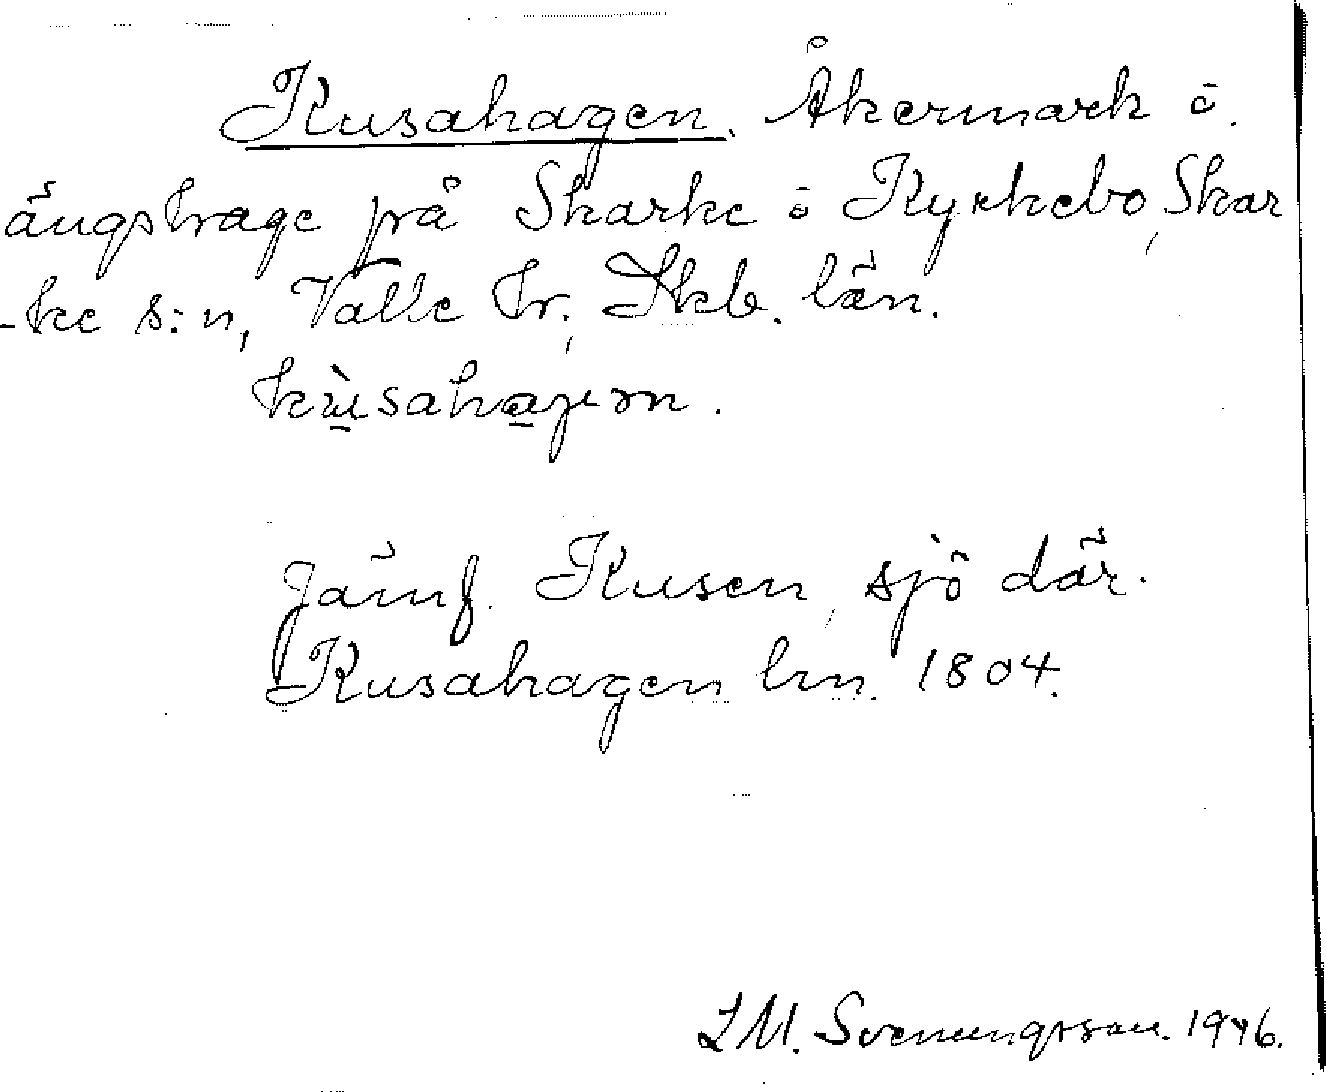 Kusahagen. Åkermark o.
ängshage på Skarke o Kyrkebo, Skar
-ke s:n, Valle hr., Skb. län.
kùsahaʒɯn.
Jämf. Kusen, sjö där.
Kusahagen lm. 1804.
LM. Svenungsson. 1946.